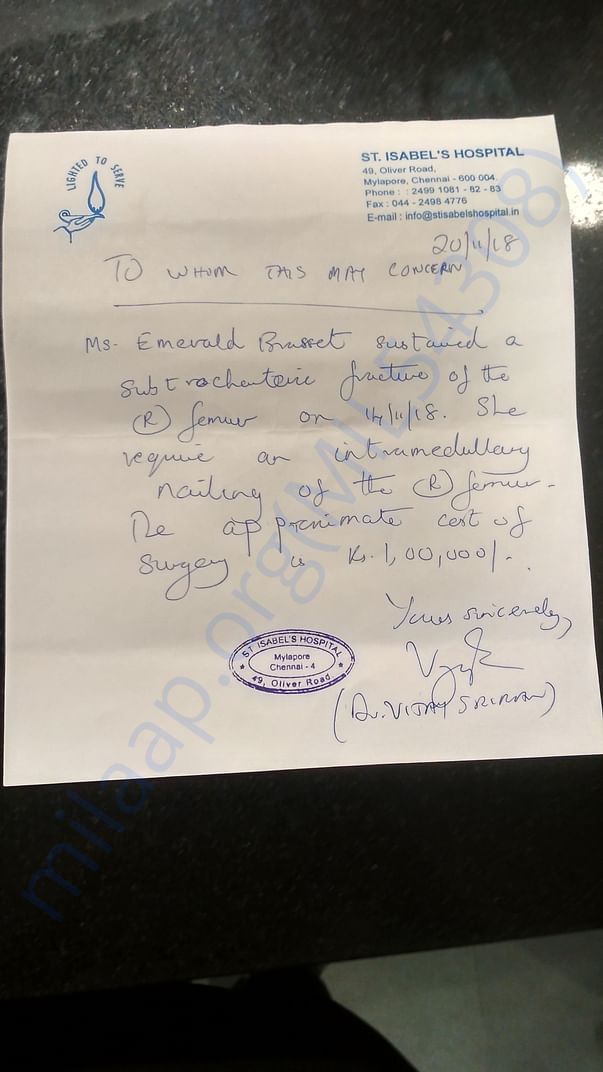 LIGHTED TO SERVE
ST. ISABEL'S HOSPITAL
49, Oliver Road,
Mylapore, Chennai - 600 004.
Phone : : 2499 1081 - 82 - 83
Fax : 044 - 2498 4776
E-mail : info@stisabelshospital.in
20/11/18
TO WHOM THIS MAY CONCERN
Ms. Emerald Brasset sustained a
subtrochanteric fracture of the
(R) femur on 14/11/18. She
require an intramedullary
nailing of the (R) femur.
The approximate cost of
surgery is Rs. 1,00,000/-.
Yours sincerely,
(Dr. VIJAY SRIRAM)
ST. ISABEL'S HOSPITAL
Mylapore
Chennai - 4
49, Oliver Road.
milaap.org(MIL54308)